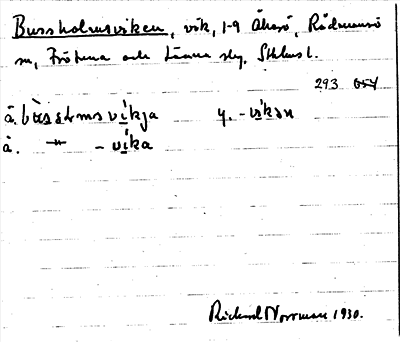 Bussholmsviken, vik, 1-9 Åkerö, Rådmansö
sn, Frötuna och Länna skg, Sthlms l.
293 654
å. bùssɘlmsvíkja y. -víkɘn
å. -"- -víka
Richard Norrman 1930.